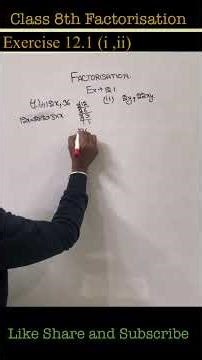 Class 8th Factorisation
Exercise 12.1 (i ,ii)
FACTORISATION
Ex → 12.1
(i) 12x, 36
(ii) 2y, 22xy
Like Share and Subscribe